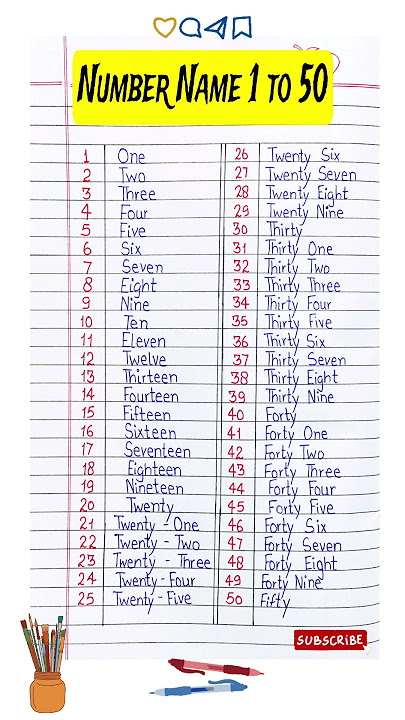 NUMBER NAME 1 TO 50
1 One
2 Two
3 Three
4 Four
5 Five
6 Six
7 Seven
8 Eight
9 Nine
10 Ten
11 Eleven
12 Twelve
13 Thirteen
14 Fourteen
15 Fifteen
16 Sixteen
17 Seventeen
18 Eighteen
19 Nineteen
20 Twenty
21 Twenty - One
22 Twenty - Two
23 Twenty - Three
24 Twenty - Four
25 Twenty - Five
26 Twenty Six
27 Twenty Seven
28 Twenty Eight
29 Twenty Nine
30 Thirty
31 Thirty One
32 Thirty Two
33 Thirty Three
34 Thirty Four
35 Thirty Five
36 Thirty Six
37 Thirty Seven
38 Thirty Eight
39 Thirty Nine
40 Forty
41 Forty One
42 Forty Two
43 Forty Three
44 Forty Four
45 Forty Five
46 Forty Six
47 Forty Seven
48 Forty Eight
49 Forty Nine
50 Fifty
SUBSCRIBE